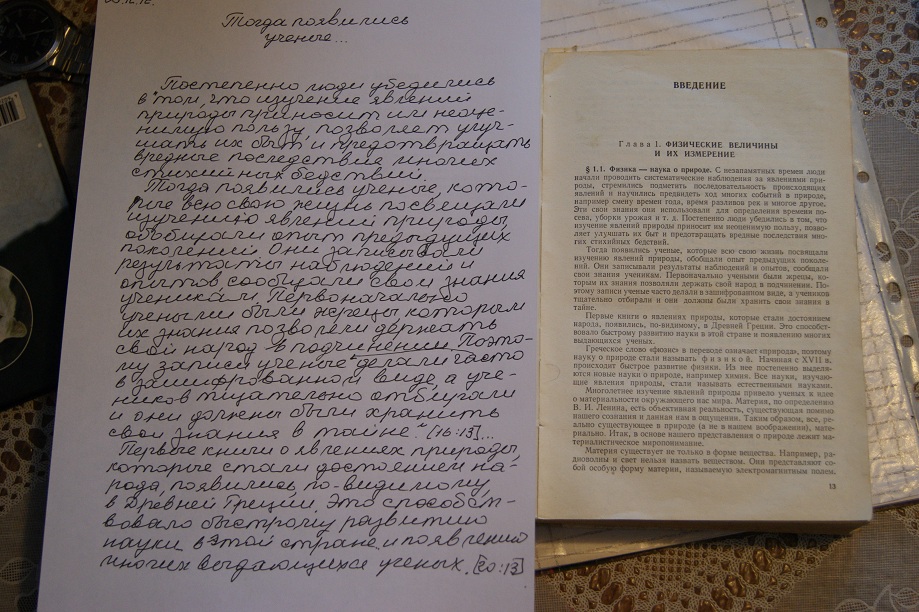 Тогда появились
ученые...
Постепенно люди убедились
в том, что изучение явлений
природы приносит им неоце-
нимую пользу, позволяет улуч-
шать их быт и предотвращать
вредные последствия многих
стихийных бедствий.
Тогда появились ученые, кото-
рые всю свою жизнь посвящали
изучению явлений природы,
обобщали опыт предыдущих
поколений. Они записывали
результаты наблюдений и
опытов, сообщали свои знания
ученикам. Первоначально
учеными были жрецы, которым
их знания позволяли держать
свой народ в подчинении. Поэто-
му записи ученые делали часто
в зашифрованном виде, а уче-
ников тщательно отбирали
и они должны были хранить
свои знания в тайне." [16:13]...
Первые книги о явлениях природы,
которые стали достоянием на-
рода, появились, по-видимому,
в Древней Греции. Это способст-
вовало быстрому развитию
науки в этой стране и появлению
многих выдающихся ученых. [20:13]
ВВЕДЕНИЕ
Глава I. ФИЗИЧЕСКИЕ ВЕЛИЧИНЫ
И ИХ ИЗМЕРЕНИЕ
§ 1.1. Физика — наука о природе. С незапамятных времен люди
начали проводить систематические наблюдения за явлениями при-
роды, стремились подметить последовательность происходящих
явлений и научились предвидеть ход многих событий в природе,
например смену времен года, время разливов рек и многое другое.
Эти свои знания они использовали для определения времени по-
сева, уборки урожая и т. д. Постепенно люди убедились в том, что
изучение явлений природы приносит им неоценимую пользу, позво-
ляет улучшать их быт и предотвращать вредные последствия мно-
гих стихийных бедствий.
Тогда появились ученые, которые всю свою жизнь посвящали
изучению явлений природы, обобщали опыт предыдущих поколе-
ний. Они записывали результаты наблюдений и опытов, сообщали
свои знания ученикам. Первоначально учеными были жрецы, ко-
торым их знания позволяли держать свой народ в подчинении. По-
этому записи ученые часто делали в зашифрованном виде, а учеников
тщательно отбирали и они должны были хранить свои знания в
тайне.
Первые книги о явлениях природы, которые стали достоянием
народа, появились, по-видимому, в Древней Греции. Это способст-
вовало быстрому развитию науки в этой стране и появлению многих
выдающихся ученых.
Греческое слово «фюзис» в переводе означает «природа», поэтому
науку о природе стали называть физикой. Начиная с XVII в.
происходит быстрое развитие физики. Из нее постепенно выделя-
ются новые науки о природе, например химия. Все науки, изучаю-
щие явления природы, стали называть естественными науками.
Многолетнее изучение явлений природы привело ученых к идее
о материальности окружающего нас мира. Материя, по определению
В. И. Ленина, есть объективная реальность, существующая помимо
нашего сознания и данная нам в ощущении. Таким образом, все, ре-
ально существующее в природе (а не в нашем воображении), мате-
риально. Итак, в основе нашего представления о природе лежит ма-
териалистическое миропонимание.
Материя существует не только в форме вещества. Например, ра-
диоволны и свет нельзя назвать веществом. Они представляют со-
бой особую форму материи, называемую электромагнитным полем.
13